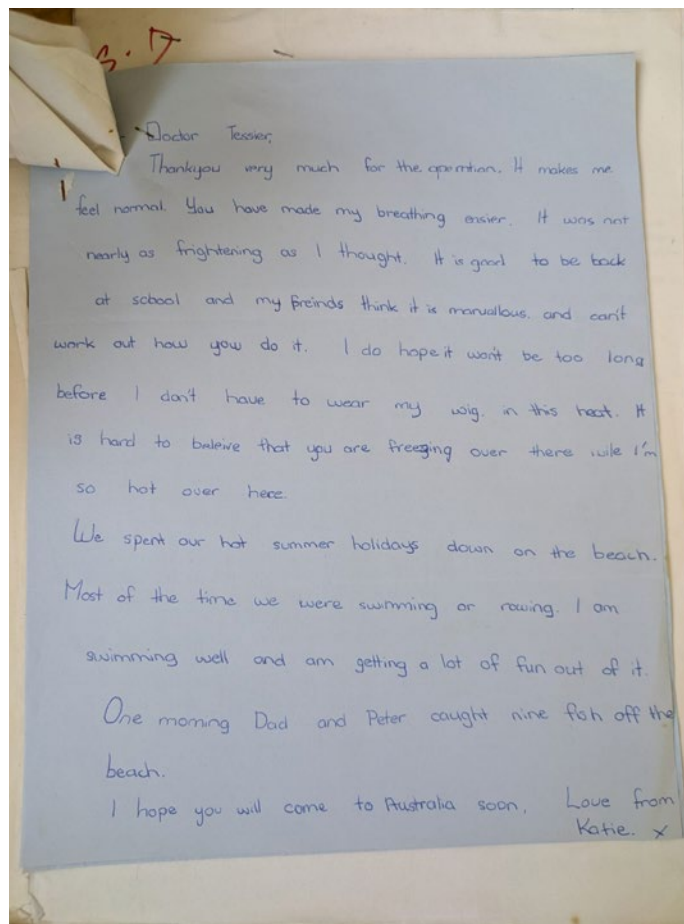 Doctor Tessier,
Thankyou very much for the operation. It makes me
feel normal. You have made my breathing easier. It was not
nearly as frightening as I thought. It is good to be back
at school and my freinds think it is marvallous. and can't
work out how yow do it. I do hope it won't be too long
before I don't have to wear my wig. in this heat. It
is hard to beleive that you are freezing over there wile I'm
so hot over here.
We spent our hot summer holidays down on the beach.
Most of the time we were swimming or rowing. I am
swimming well and am getting a lot of fun out of it.
One morning Dad and Peter caught nine fish off the
beach.
I hope you will come to Australia soon. Love from
Katie. x